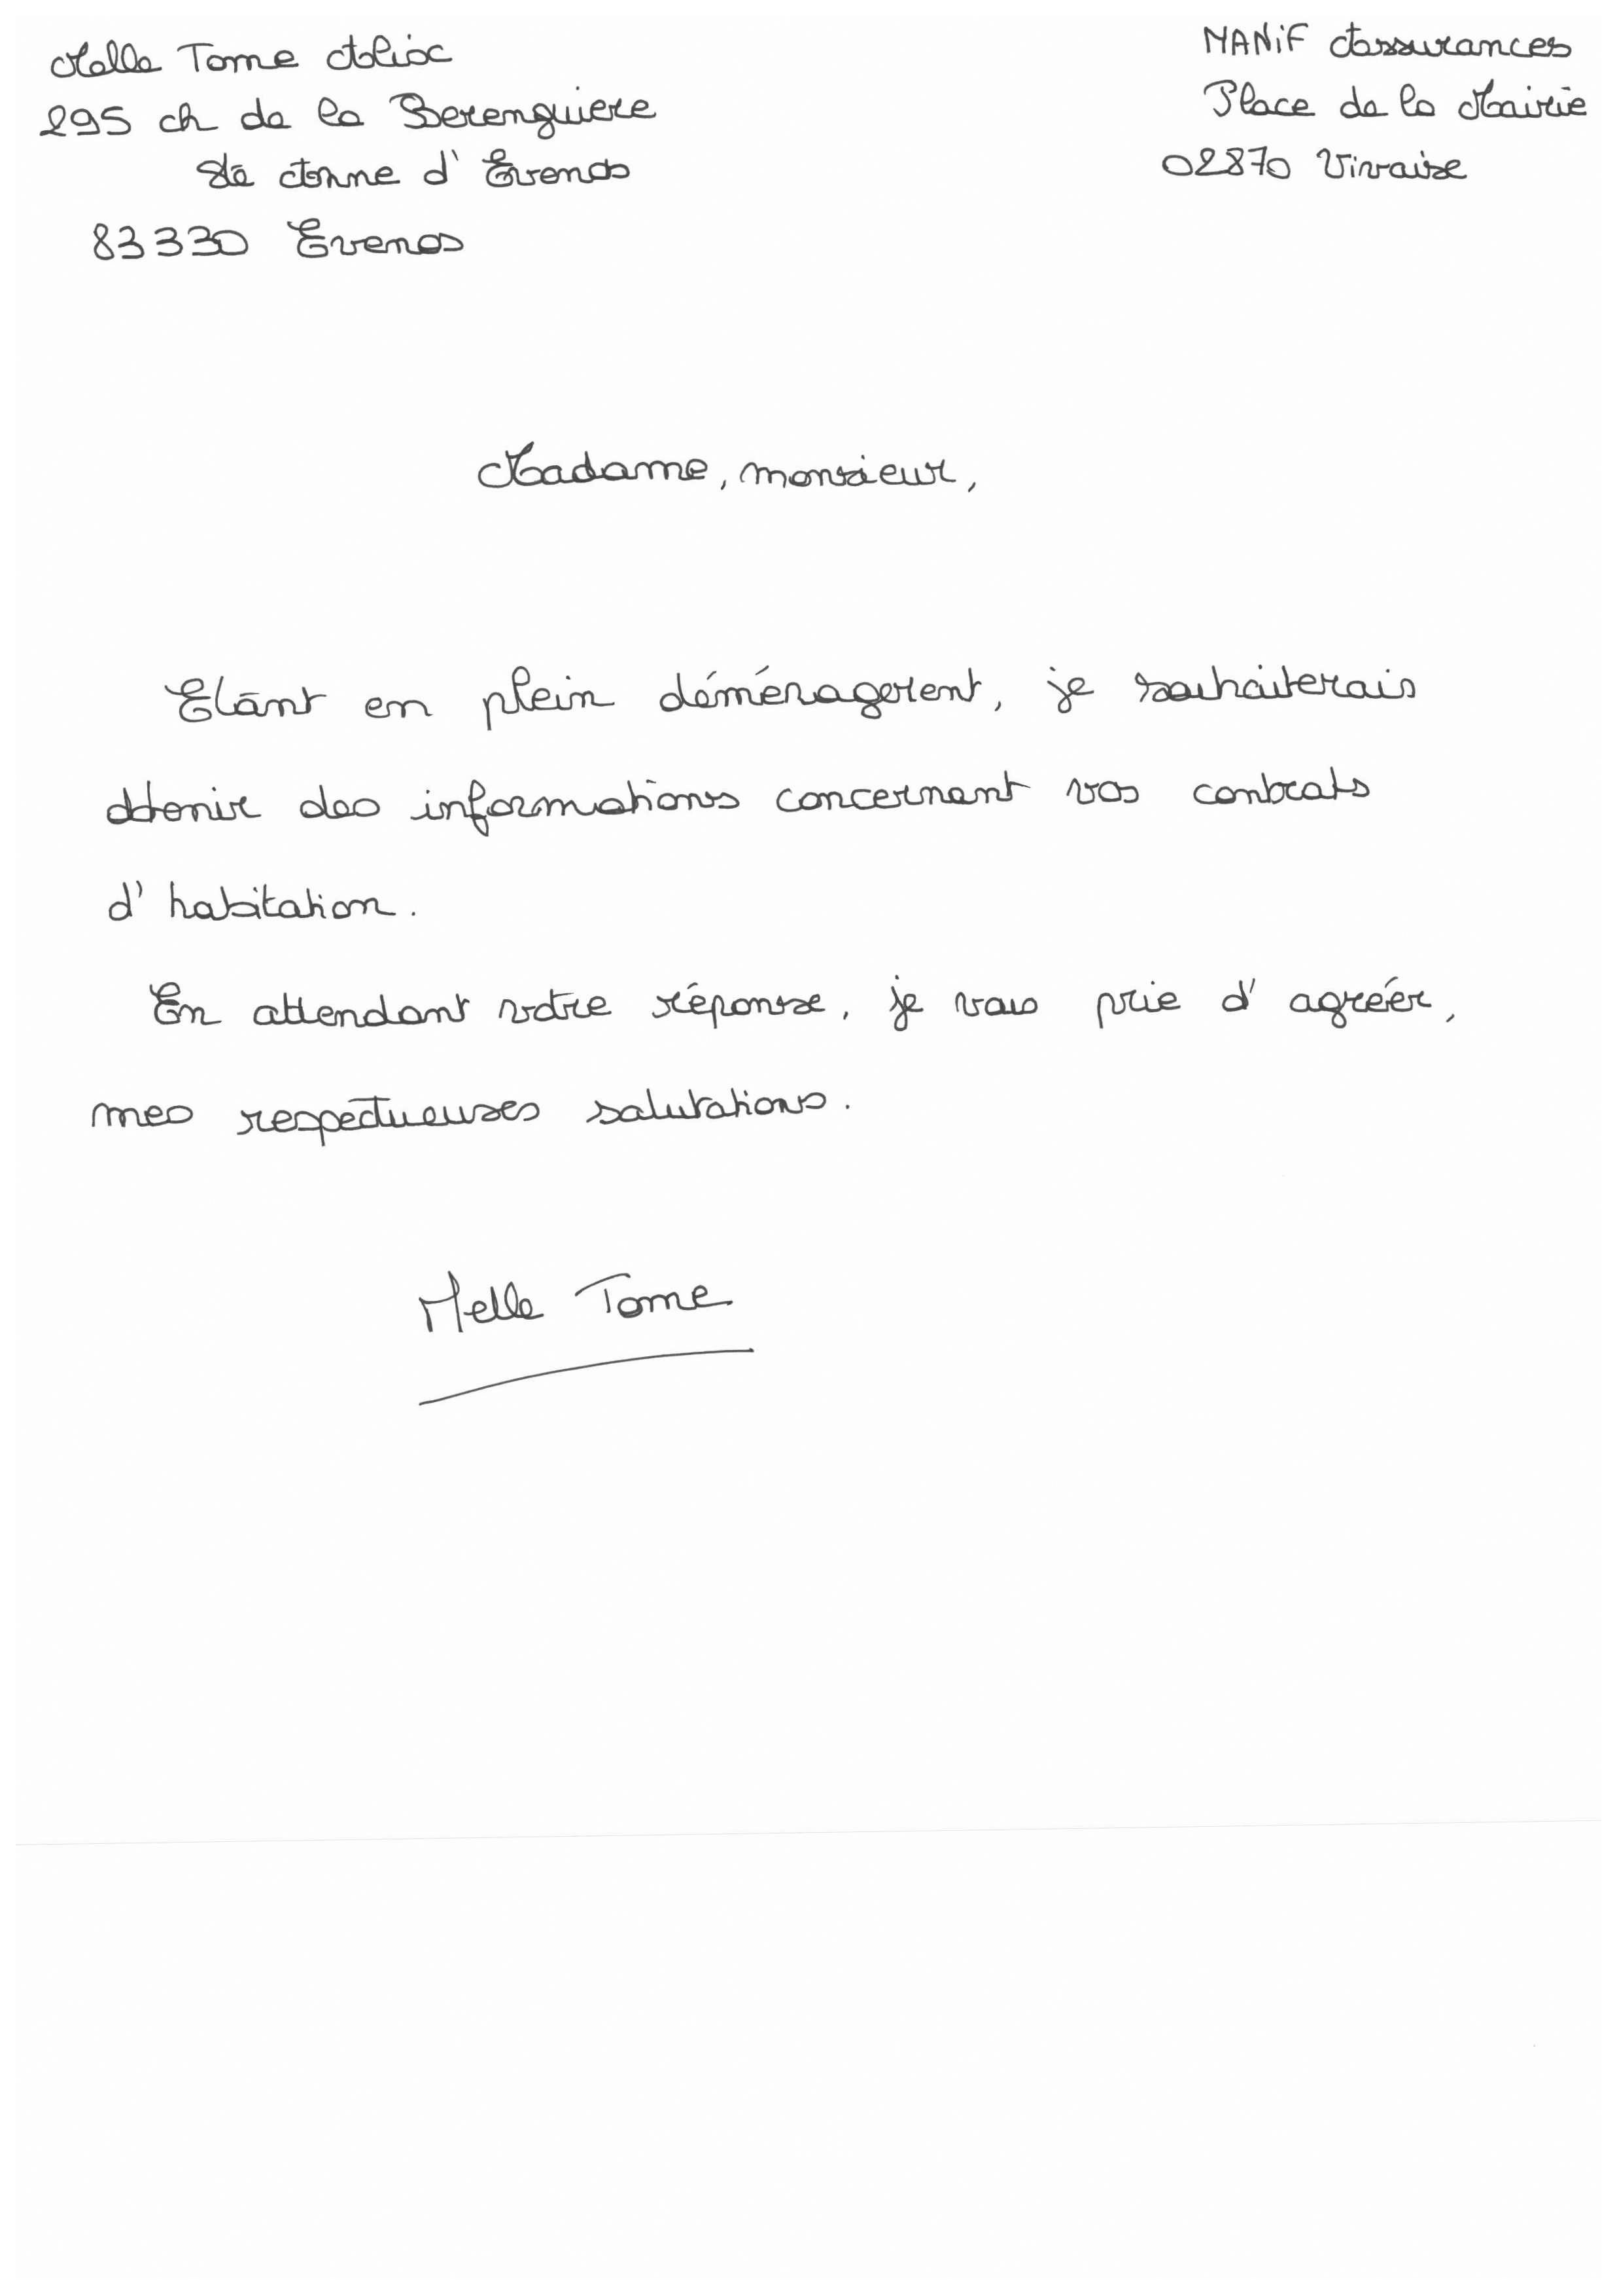 Melle Tome Alix
295 ch de la Berenguiere
Ste Anne d' Evenos
83330 Evenos
MANiF Assurances
Place de la Mairie
02870 Vivaise
Madame, monsieur,
Etant en plein déménagement, je souhaiterais
obtenir des informations concernant vos contrats
d' habitation.
En attendant votre réponse, je vous prie d' agréer,
mes respectueuses salutations.
Melle Tome